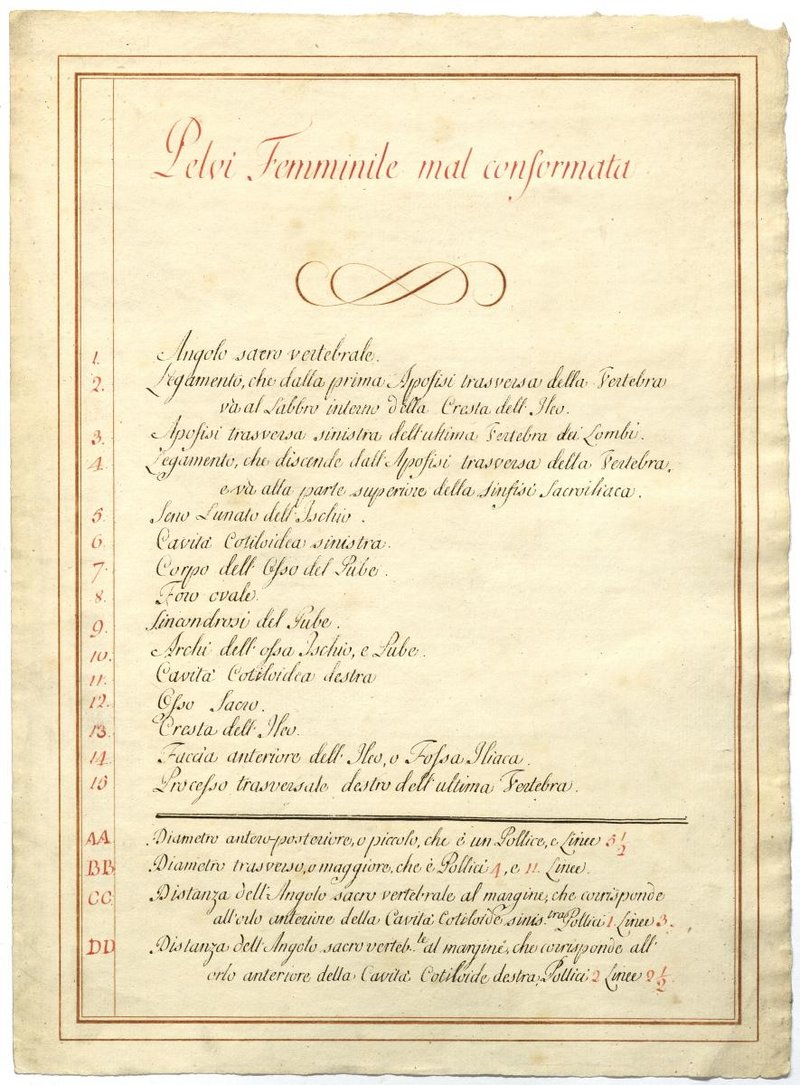 Pelvi Femminile mal conformata
1. Angolo sacro vertebrale.
2. Legamento, che dalla prima Apofisi trasversa della Vertebra
và al Labbro interno della Cresta dell' Ileo.
3. Apofisi trasversa sinistra dell' ultima Vertebra dei Lombi.
4. Legamento, che discende dall' Apofisi trasversa della Vertebra,
e và alla parte superiore della Sinfisi Sacroiliaca.
5. Seno Lunato dell' Ischio.
6. Cavità Cotiloidea sinistra.
7. Corpo dell' Osso del Pube.
8. Foro ovale.
9. Sincondrosi del Pube.
10. Archi dell' ossa Ischio, e Pube.
11. Cavità Cotiloidea destra
12. Osso Sacro.
13. Cresta dell' Ileo.
14. Faccia anteriore dell' Ileo, o Fossa Iliaca.
15 Processo trasversale destro dell' ultima Vertebra.
AA Diametro antero-posteriore, o piccolo, che è un Pollice, e Linee 5 1/2
BB Diametro trasverso, o maggiore, che è Pollici 4, e 11. Linee.
CC. Distanza dell' Angolo sacro vertebrale al margine, che corrisponde
all' orlo anteriore della Cavità Cotiloide sinis.tra Pollici 1. Linee 3.
DD Distanza dell' Angolo sacro verteb.le al margine, che corrisponde all'
orlo anteriore della Cavità Cotiloide destra, Pollici 2 Linee 9 1/2.